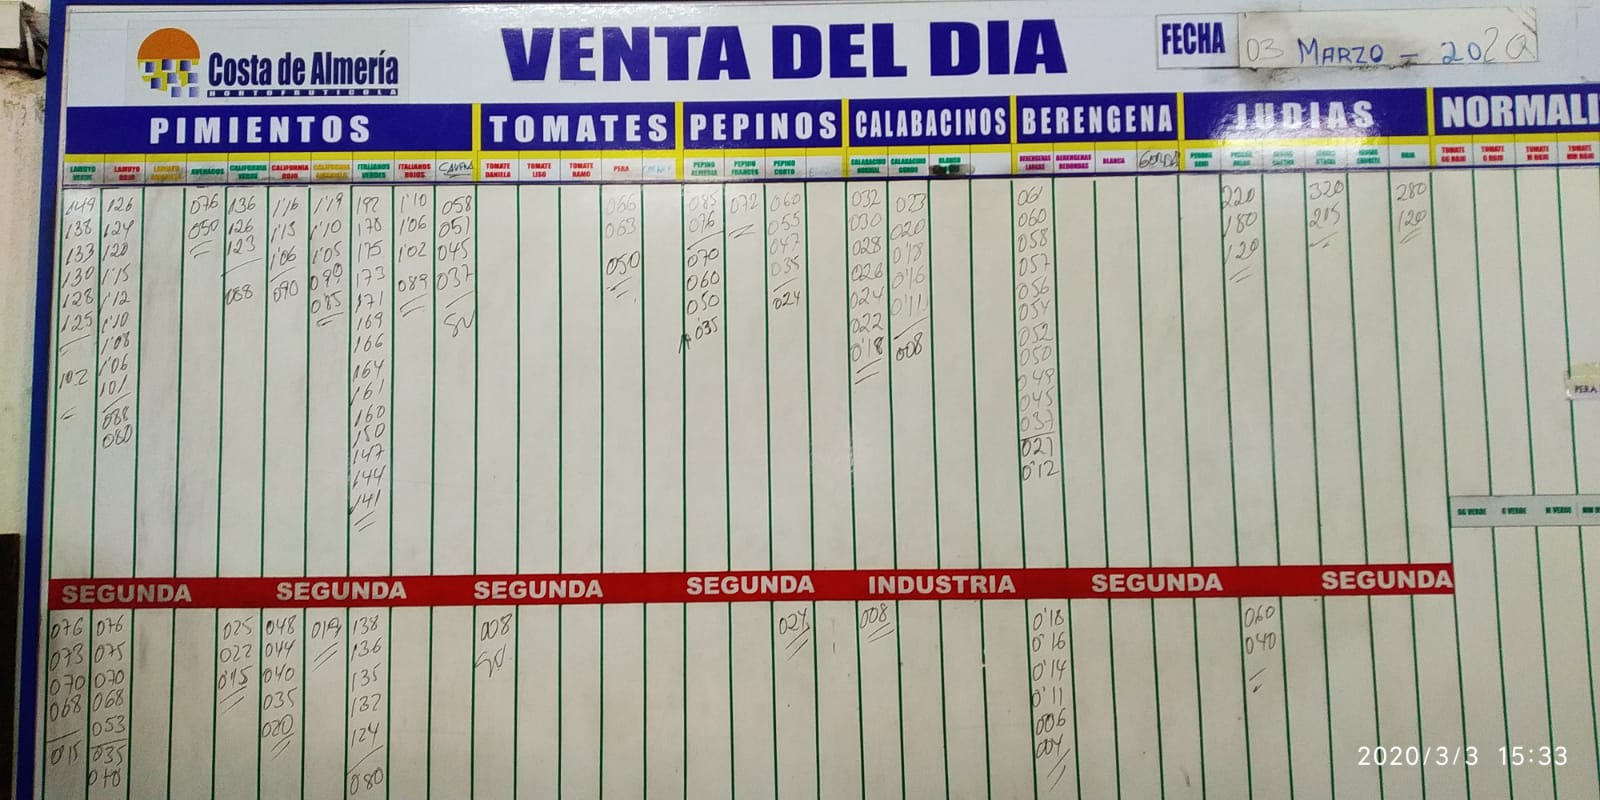 Costa de Almería
HORTOFRUTICOLA
VENTA DEL DIA
FECHA 03 MARZO - 2020
PIMIENTOS TOMATES PEPINOS CALABACINOS BERENGENA JUDIAS NORMALI
LAMUYO ROJO CALIFORNIA VERDE CALIFORNIA ROJO ITALIANOS VERDES ITALIANOS ROJOS TOMATE DANIELA TOMATE LISO TOMATE RAMO PERA PEPINO ALMERIA PEPINO FRANCES PEPINO CORTO CALABACINO NORMAL CALABACINO GORDO BLANCO BERENGENAS LARGAS BERENGENAS REDONDAS BLANCA GORDA
149 126 076 136 1'16 1'19 192 1'10 058 066 085 072 060 032 023 061 220 320 280
138 124 050 126 1'13 1'10 178 1'06 051 063 076 055 030 020 060 180 215 120
133 120 123 1'06 1'05 175 1'02 045 050 070 047 028 0'18 058 120
130 1'15 088 090 099 173 089 037 060 035 026 0'16 057
128 1'12 085 171 050 024 024 0'11 056
125 1'10 169 035 022 054
1'08 166 0'18 008 052
102 1'06 164 050
101 161 049
088 160 045
080 150 037
147 027
144 0'12
141
PERA
GG VERDE G VERDE M VERDE
SEGUNDA SEGUNDA SEGUNDA SEGUNDA INDUSTRIA SEGUNDA SEGUNDA
076 076 025 048 019 138 008 024 008 0'18 060
073 075 022 044 136 0'16 040
070 070 0'15 040 135 0'14
068 068 035 132 0'11
053 020 124 006
0'15 035 080 004
2020/3/3 15:33